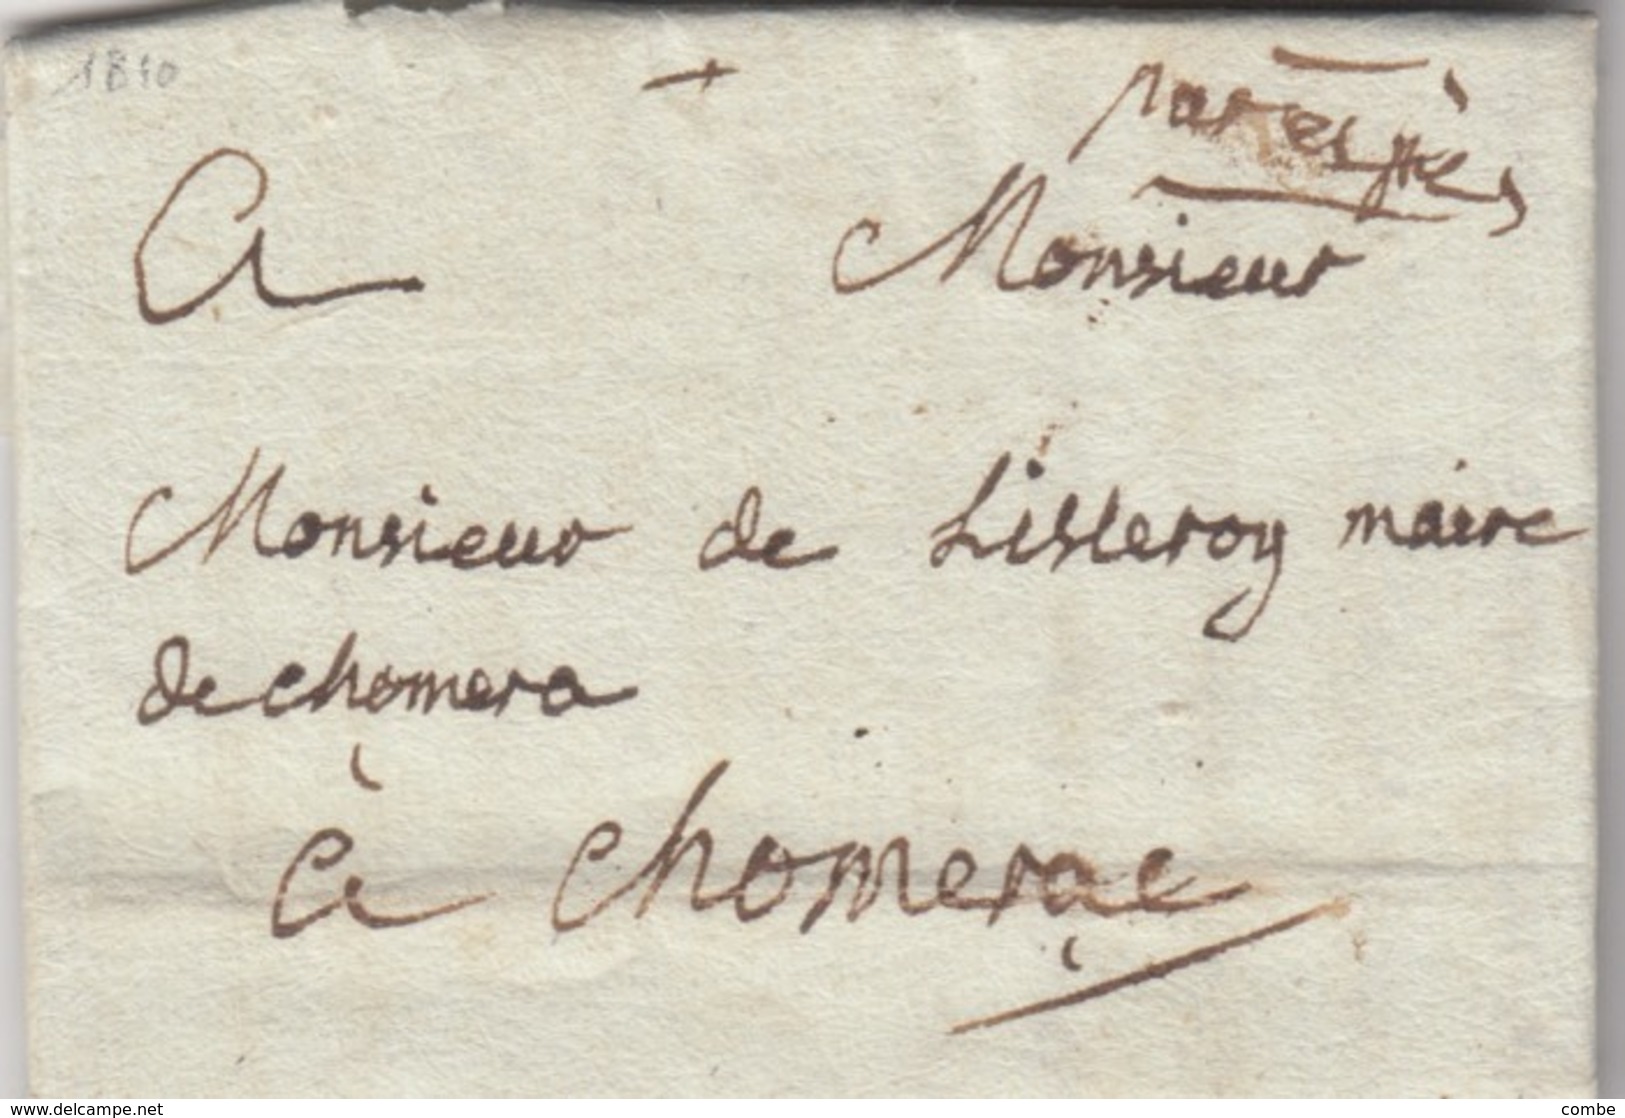 1810
par exprès
A Monsieur
Monsieur de Lisleroy maire
de chomera
à chomerac
www.delcampe.net
combe